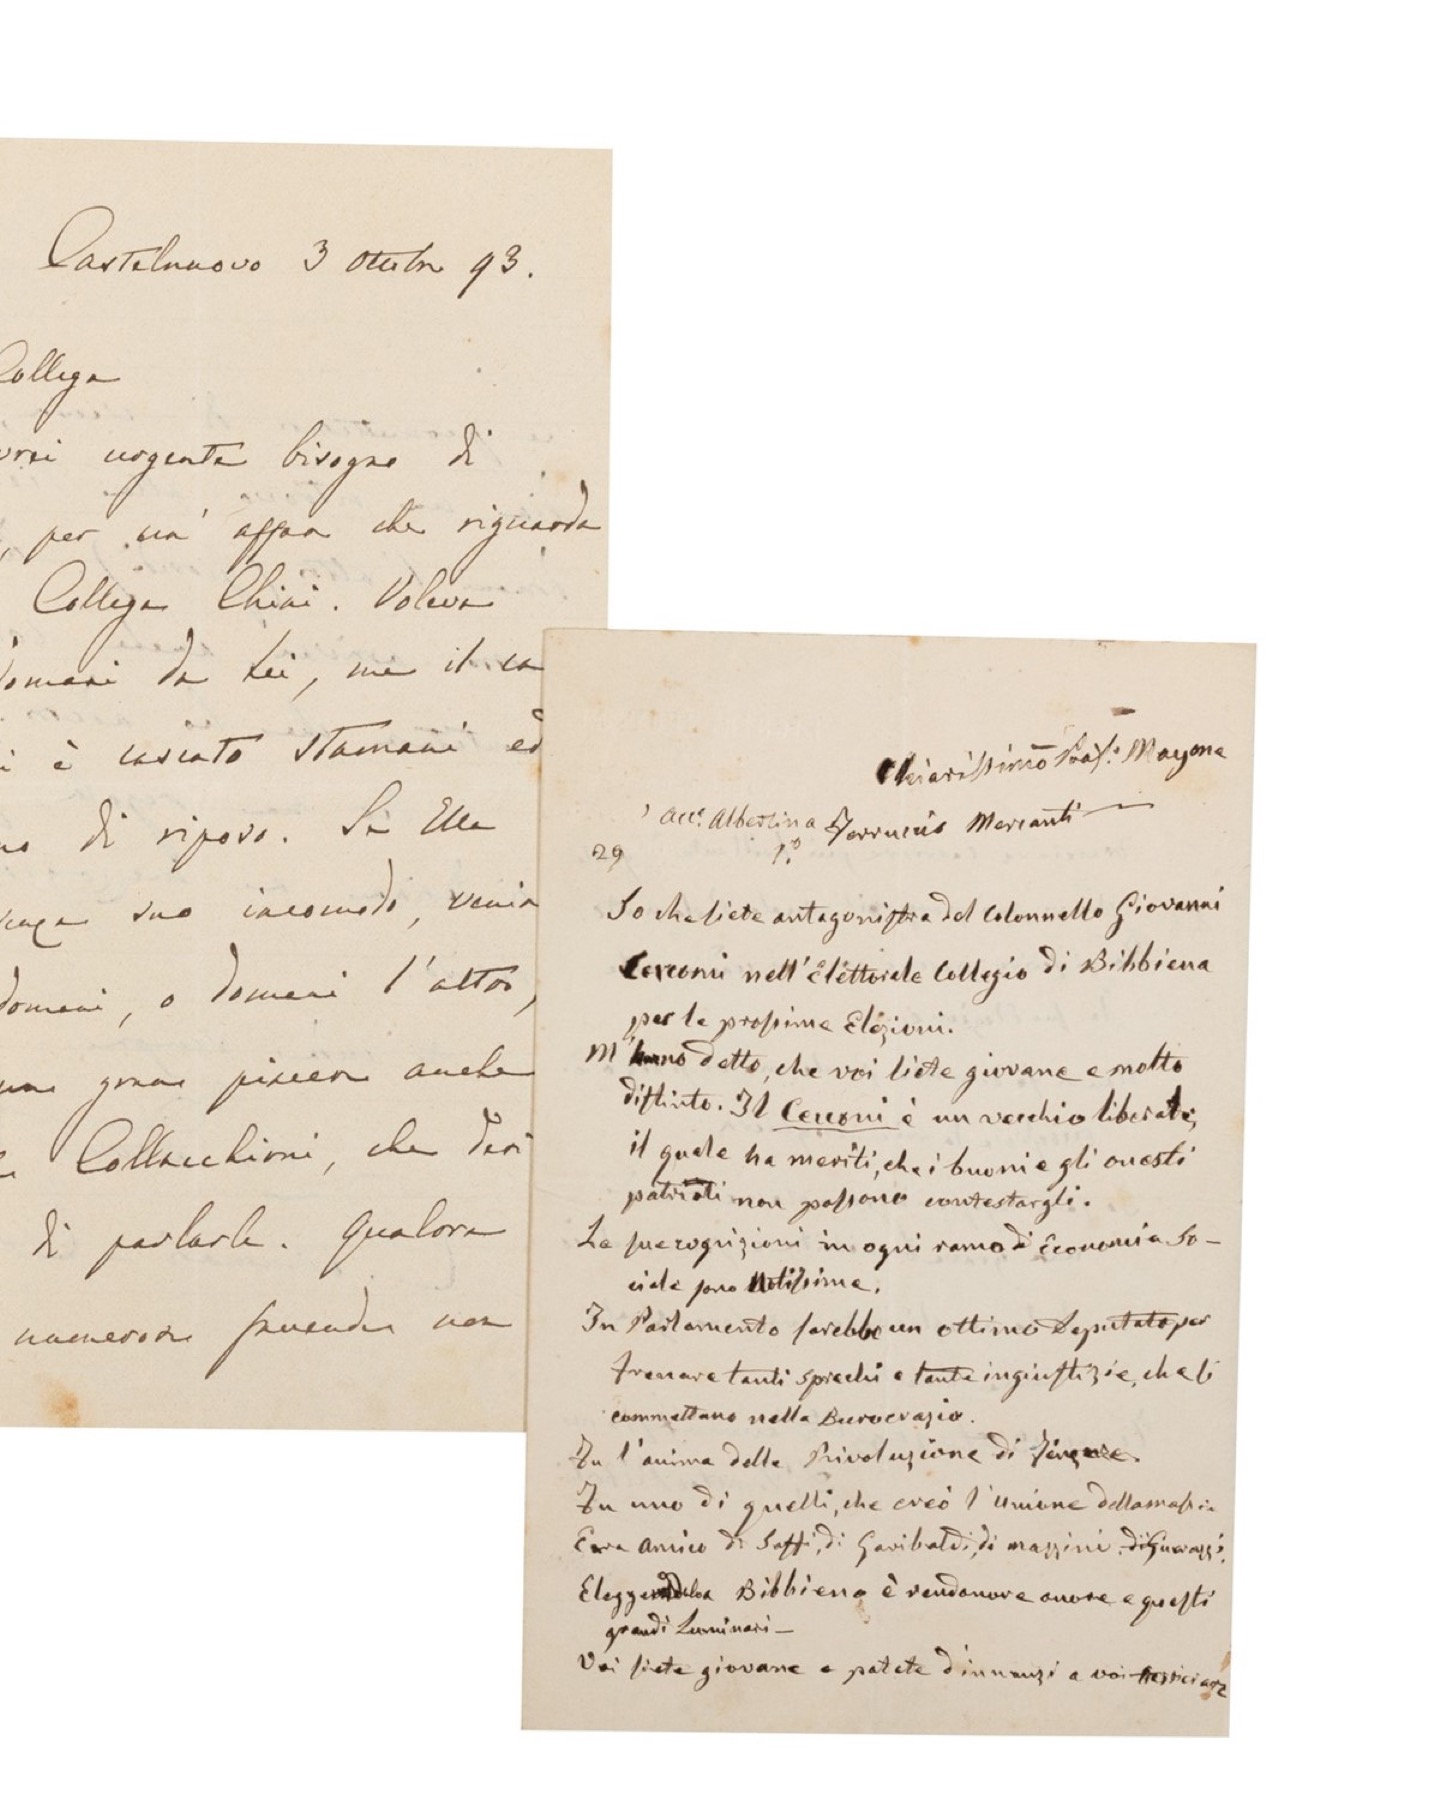 Castelnuovo 3 ottobre 93.
Collega
urgente bisogno di
, per un' affare che riguarda
Collega Chiari. Voleva
domani da Lei, ma il ca
i è cascato stamani ed
no di riposo. Se Ella
senza suo incomodo, venir
domani, o domani l'altro,
un gran piacere anche
Collacchioni, che desi
di parlarle. Qualora
numerose faccende non
Chiarissimo Prof.e Mayone
Acc.e Albertina Ferruccio Mercanti
29 1.o
So che siete antagonista del Colonnello Giovanni
Cerconi nell'Elettorale Collegio di Bibbiena
per le prossime Elezioni.
M'hanno detto, che voi siete giovane e molto
distinto. Il Cerconi è un vecchio liberale,
il quale ha meriti, che i buoni e gli onesti
patrioti non possono contestargli.
Le sue cognizioni in ogni ramo di Economia So-
ciale sono Notissime.
In Parlamento sarebbe un ottimo Deputato per
frenare tanti sprechi e tante ingiustizie, che si
commettano nella Burocrazia.
Fu l'anima della Rivoluzione di Firenze.
Fu uno di quelli, che creò l'Unione della
Era Amico di Saffi, di Garibaldi, di Mazzini, di Guerazzi.
Bibbiena è rendanore onore a questi
grandi Luminari—
Voi siete giovane e potete d'innanzi a voi